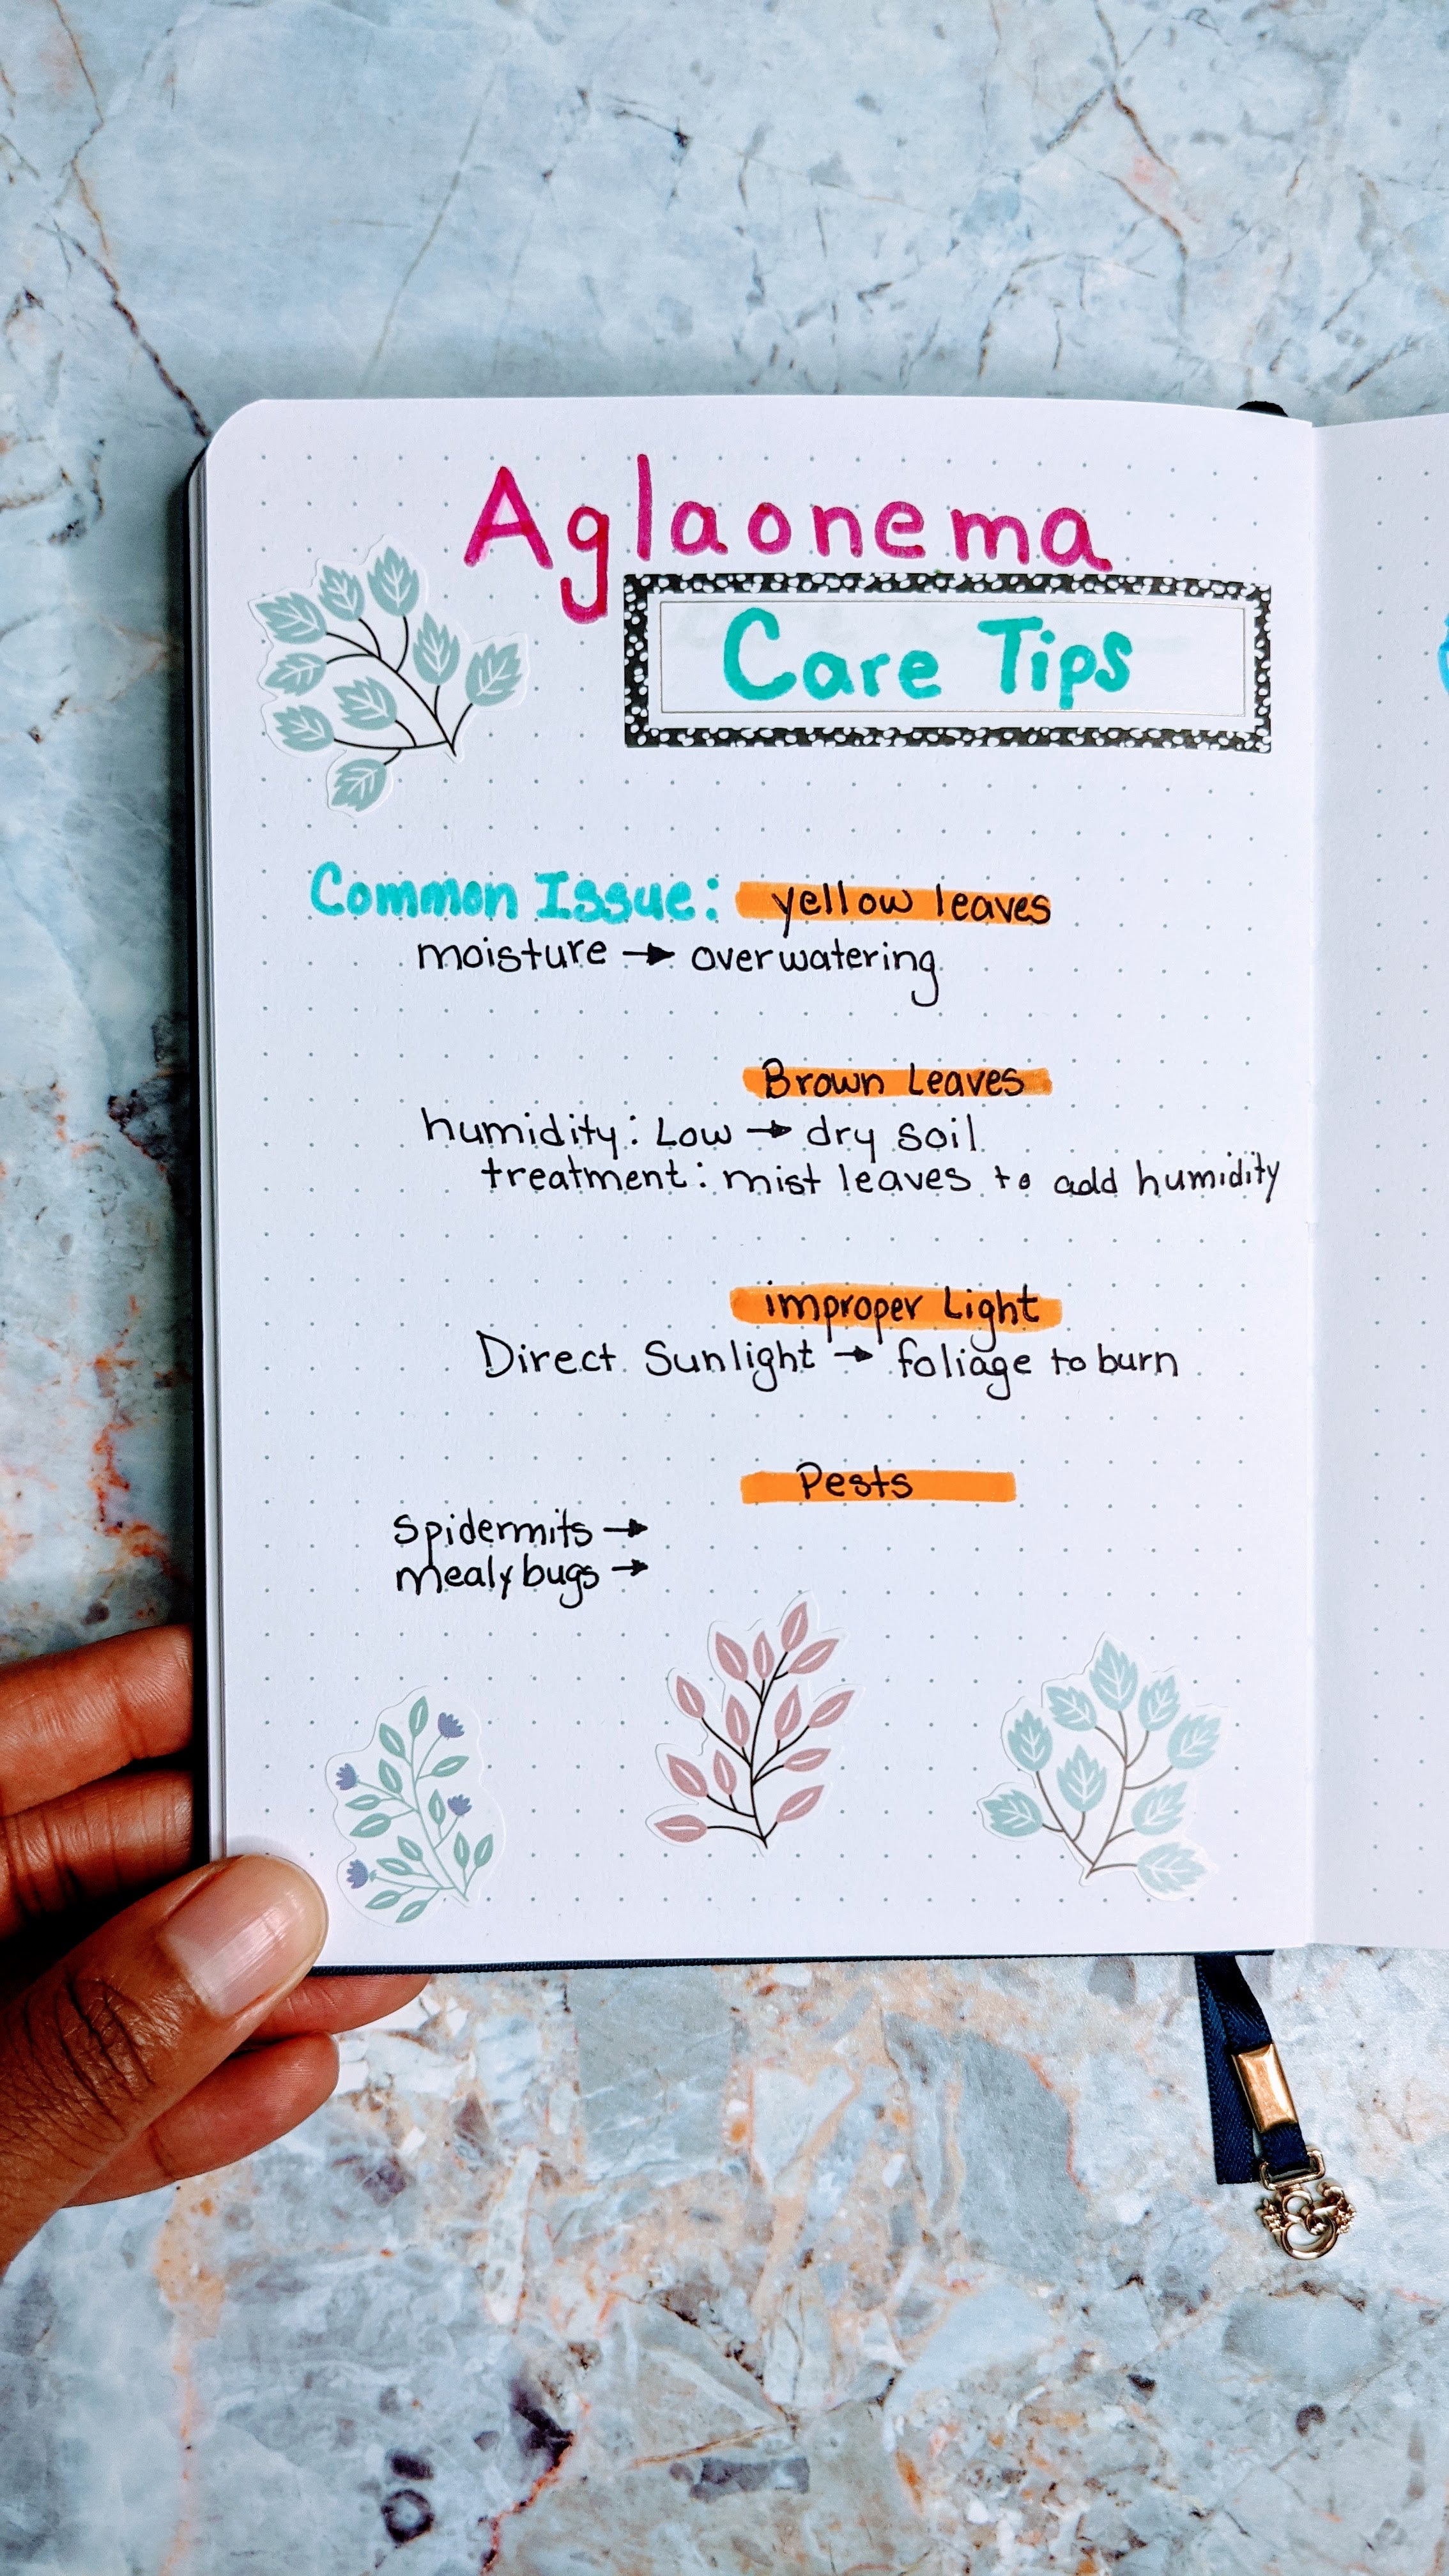 Aglaonema
Care Tips
Common Issue: yellow leaves
moisture → overwatering
Brown Leaves
humidity: Low → dry soil
treatment: mist leaves to add humidity
improper Light
Direct Sunlight → foliage to burn
Pests
Spidermits →
mealybugs →